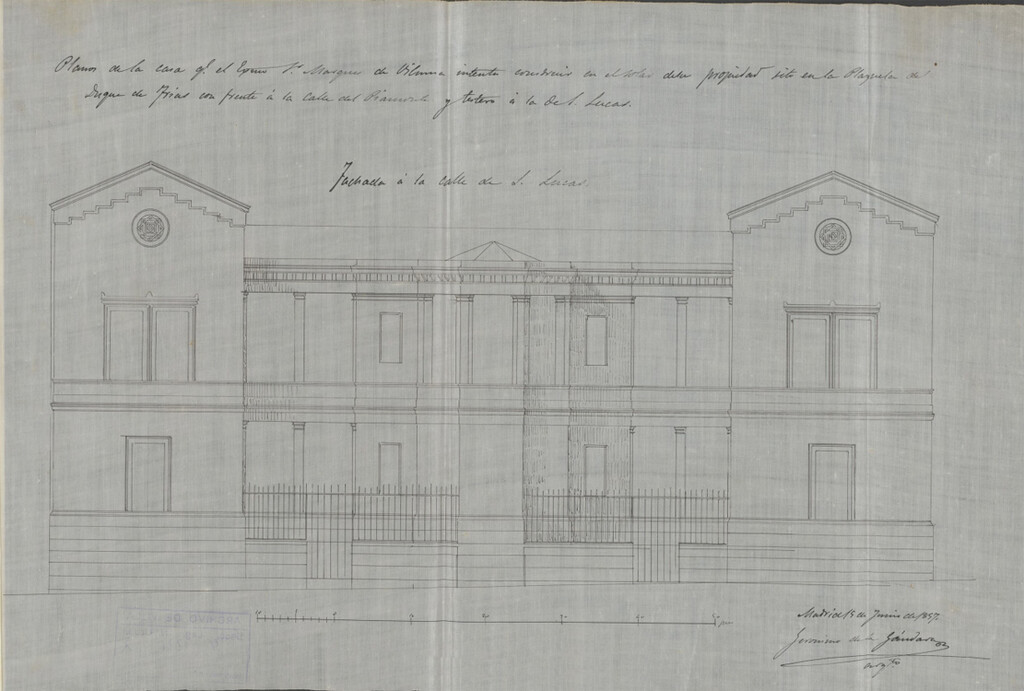 Planos de la casa q.e el Exmo S.r Marques de Viluma intenta construir en el solar de su propiedad sito en la Plazuela del
Duque de Frias con frente á la Calle del Piamonte y testero á la de S. Lucas.
Fachada á la calle de S. Lucas.
Madrid 15 de Junio de 1857.
Geronimo de la Gándara
arq.to
ARCHIVO DE